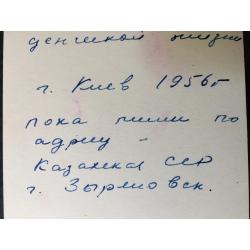 денской жизни
г. Киев 1956г
пока пиши по
адресу
Казахская ССР
г. Зыряновск.